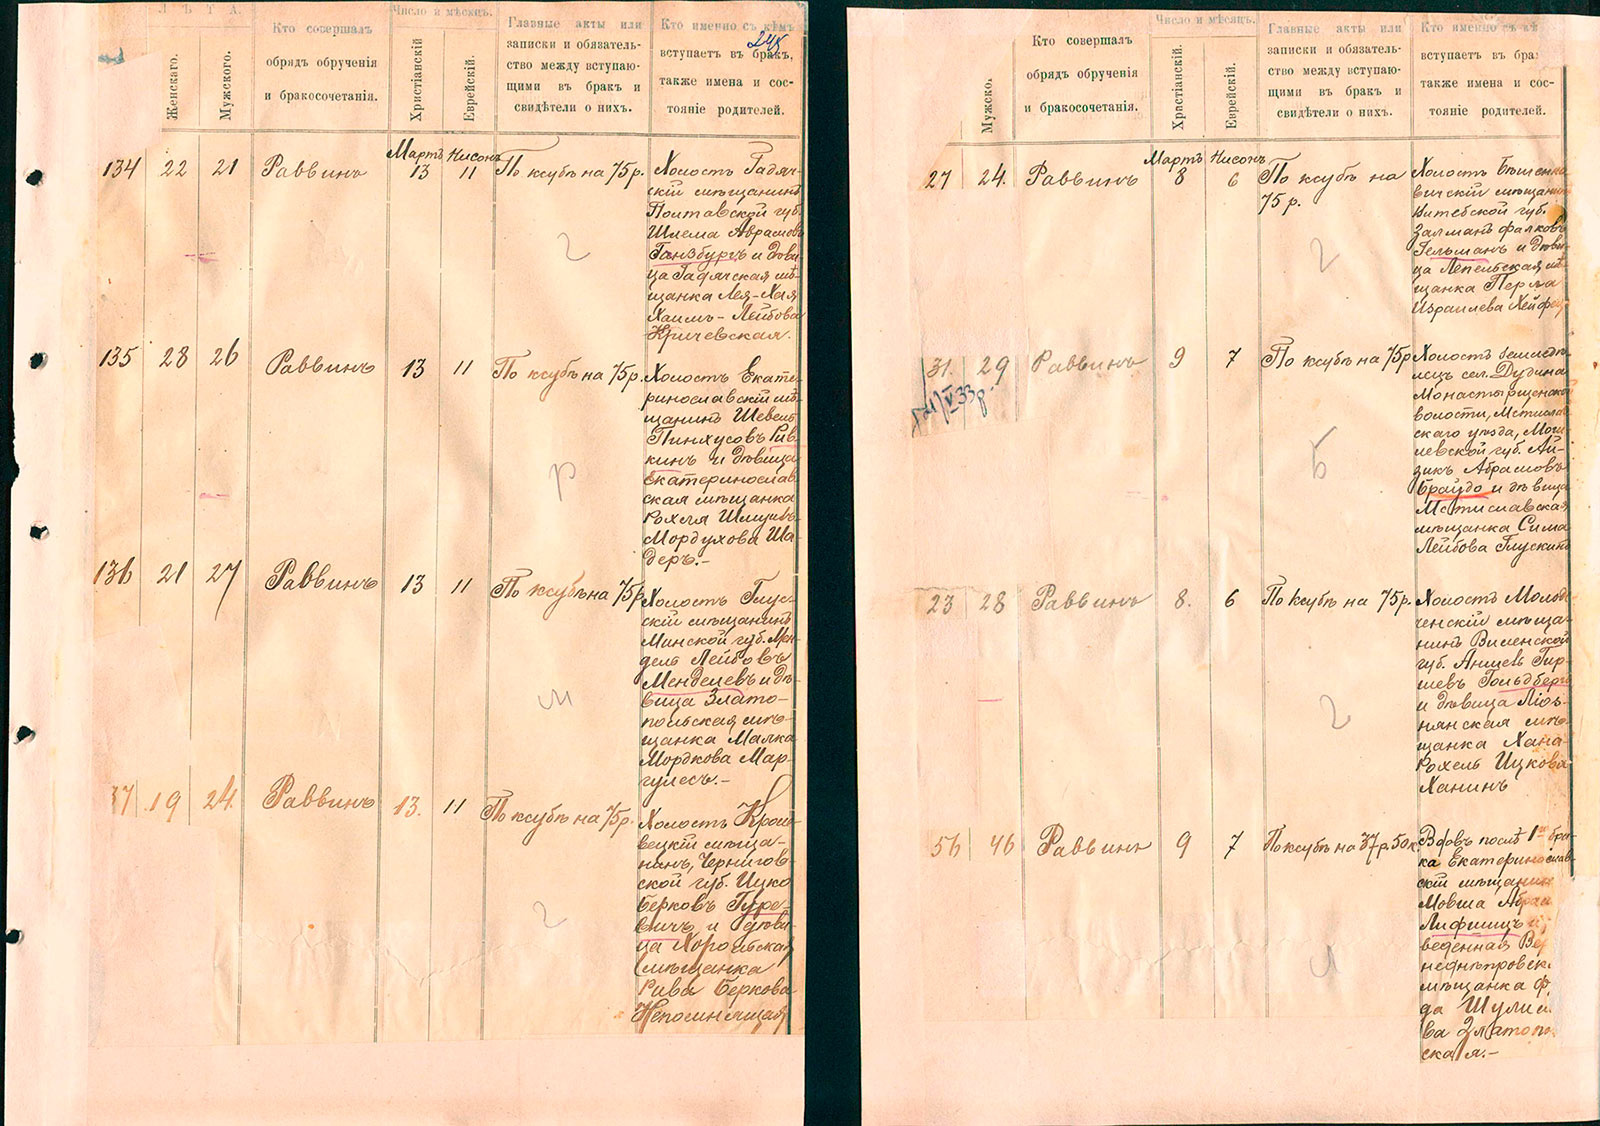 Л Ѣ Т А.
Женскаго.
Мужского.
Кто совершалъ
обрядъ обрученія
и бракосочетанія.
Число и мѣсяцъ.
Христіанскій
Еврейскій.
Главные акты или
записки и обязатель-
ство между вступаю-
щими въ бракъ и
свидѣтели о нихъ.
Кто именно съ кѣмъ
вступаетъ въ бракъ,
также имена и сос-
тояніе родителей.
134 22 21 Раввинъ Мартъ 13 Нисонъ 11 По ксубѣ на 75р.
Холостъ Гадяч-
скій мѣщанинъ
Полтавской губ.
Шлема Абрамовъ
Ганзбургъ и дѣви-
ца Гадячская мѣ-
щанка Лея-Хая
Хаимъ-Лейбова
Кричевская.
135 28 26 Раввинъ 13 11 По ксубѣ на 75р.
Холостъ Екате-
ринославскій мѣ-
щанинъ Шевель
Пинхусовъ Рив-
кинъ и дѣвица
Екатеринослав-
ская мѣщанка
Рохля Шмуилъ-
Мордухова Ша-
деръ.-
р
136 21 27 Раввинъ 13 11 По ксубѣ на 75р.
Холостъ Глус-
скій мѣщанинъ
Минской губ. Мен-
дель Лейбовъ
Менделевъ и дѣ-
вица Злато-
польская мѣ-
щанка Малка
Мордкова Мар-
гулесъ.-
м
37 19 24. Раввинъ 13. 11 По ксубѣ на 75р.
Холостъ Кроле-
вецкій мѣща-
нинъ, Чернигов-
ской губ. Ицко
Берковъ Гуре-
вичъ и дѣви-
ца Хорольская
мѣщанка
Рива Беркова
Непомнящая
г
Мужско.
Кто совершалъ
обрядъ обрученія
и бракосочетанія.
Число и мѣсяцъ.
Христіанскій.
Еврейскій.
Главные акты или
записки и обязатель-
ство между вступаю-
щими въ бракъ и
свидѣтели о нихъ.
Кто именно съ кѣ
вступаетъ въ бра
также имена и сос-
тояніе родителей.
27 24. Раввинъ Мартъ 8 Нисонъ 6 По ксубѣ на
75р.
Холостъ Бешенко
вичскій мѣщанин
Витебской губ.
Залманъ Фалковъ
Гельманъ и дѣви-
ца Лепельская мѣ-
щанка Перла
Израилева Хейфец
г
31. 29 Раввинъ 9 7 По ксубѣ на 75р
Холостъ землед-
лецъ сел. Дудина
Монастырщенско
волости, Мстислав
скаго уѣзда, Моги
левской губ. Ай-
зикъ Абрамовъ
Браудо и дѣвица
Мстиславская
мѣщанка Сима
Лейбова Глускинъ
Б
23 28 Раввинъ 8. 6 По ксубѣ на 75р.
Холостъ Молоде
ченскій мѣща-
нинъ Виленской
губ. Аншевъ Гир-
шевъ Гольдбергъ
и дѣвица Ліоз-
нянская мѣ-
щанка Хана-
Рохель Ицкова
Ханинъ
г
56 46 Раввинъ 9 7 По ксубѣ на 37р. 50к.
Вдовъ послѣ 1го бра-
ка Екатеринослав-
скій мѣщанин
Мовша Абрам
Лифшицъ и
веденная Вер
неднѣпровск.
мѣщанка Ф
да Шулим
ва Златопо
ская.-